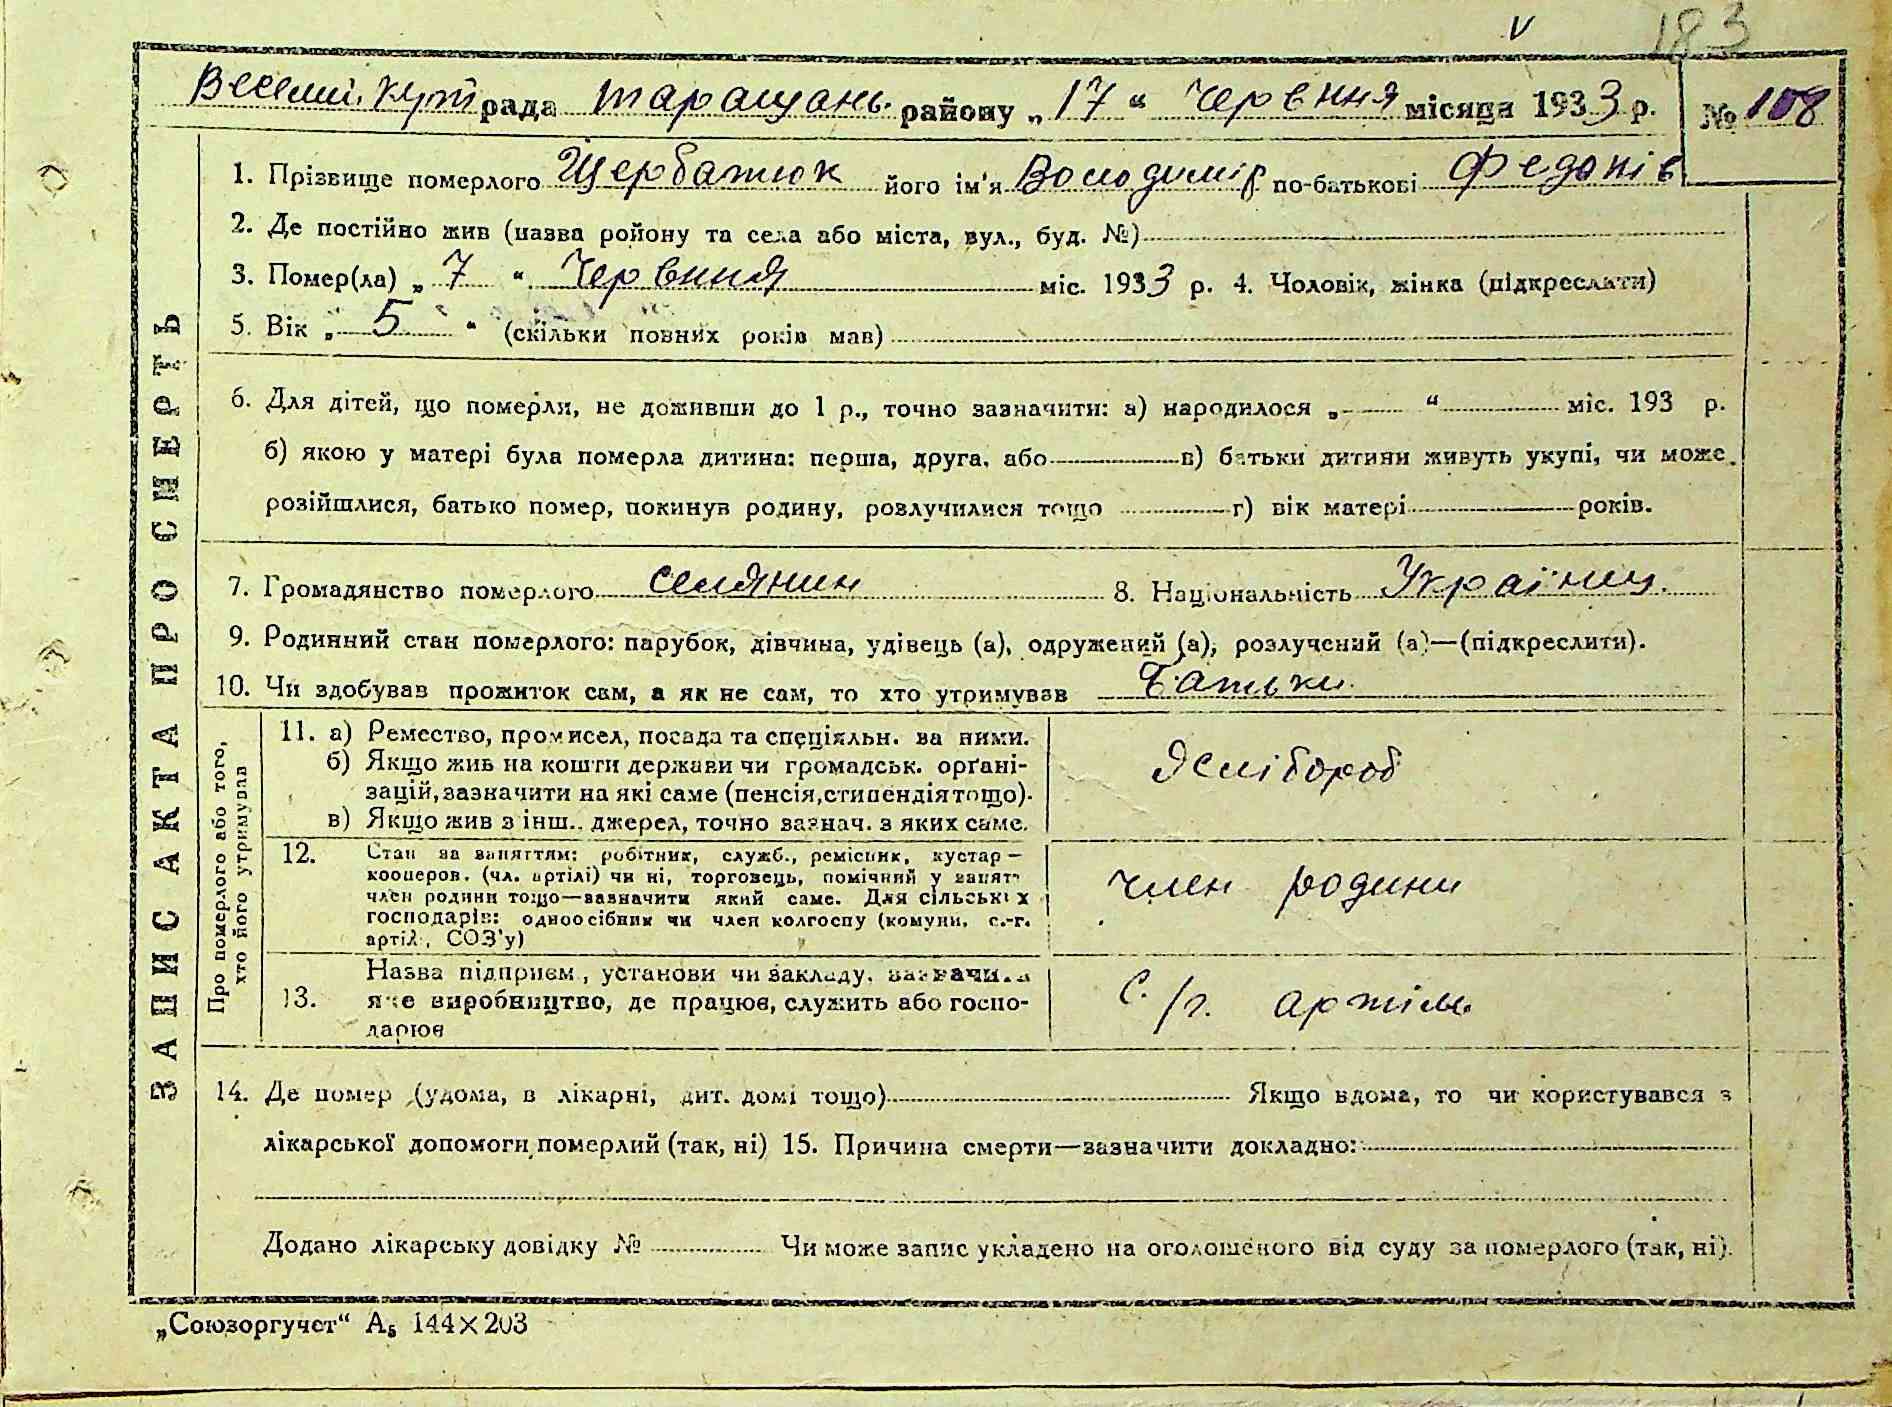 183
Веселий. кут рада Таращань. району „17“ Червння місяця 1933 р. № 108
1. Прізвище померлого Щербатюк його ім'я Володимір по-батькові Феданів
2. Де постійно жив (назва ройону та села або міста, вул., буд. №)
3. Помер(ла) „7“ Червння міс. 1933 р. 4. Чоловік, жінка (підкреслити)
5. Вік „5“ (скільки повних років мав)
6. Для дітей, що померли, не доживши до 1 р., точно зазначити: а) народилося „ “ міс. 193 р.
б) якою у матері була померла дитина: перша, друга, або в) батьки дитини живуть укупі, чи може
розійшлися, батько помер, покинув родину, розлучилися тощо г) вік матері років.
7. Громадянство померлого селянин 8. Національність Україниц.
9. Родинний стан померлого: парубок, дівчина, удівець (а), одружений (а), розлучений (а)—(підкреслити).
10. Чи здобував прожиток сам, а як не сам, то хто утримував Батьки.
ЗАПИС АКТА ПРО СМЕРТЬ
Про померлого або того,
хто його утримував
11. а) Ремество, промисел, посада та спеціяльн. за ними.
б) Якщо жив на кошти держави чи громадськ. орґані-
зацій, зазначити на які саме (пенсія, стипендія тощо).
в) Якщо жив з інш.. джерел, точно зазнач. з яких саме.
12. Стан за заняттям: робітник, служб., ремісник, кустар—
кооперов. (чл. артілі) чи ні, торговець, помічний у занят
член родини тощо—зазначити який саме. Для сільських
господарів: одноосібник чи член колгоспу (комуни, с.-г.
артіл, СОЗ'у)
член родини
13. Назва підприєм, установи чи закладу,
яке виробництво, де працює, служить або госпо-
дарює
с./г. артіль
14. Де помер (удома, в лікарні, дит. домі тощо) Якщо вдома, то чи користувався з
лікарської допомоги померлий (так, ні) 15. Причина смерти—зазначити докладно:
Додано лікарську довідку № Чи може запис укладено на оголошеного від суду за померлого (так, ні).
„Союзоргучет“ А₅ 144×203